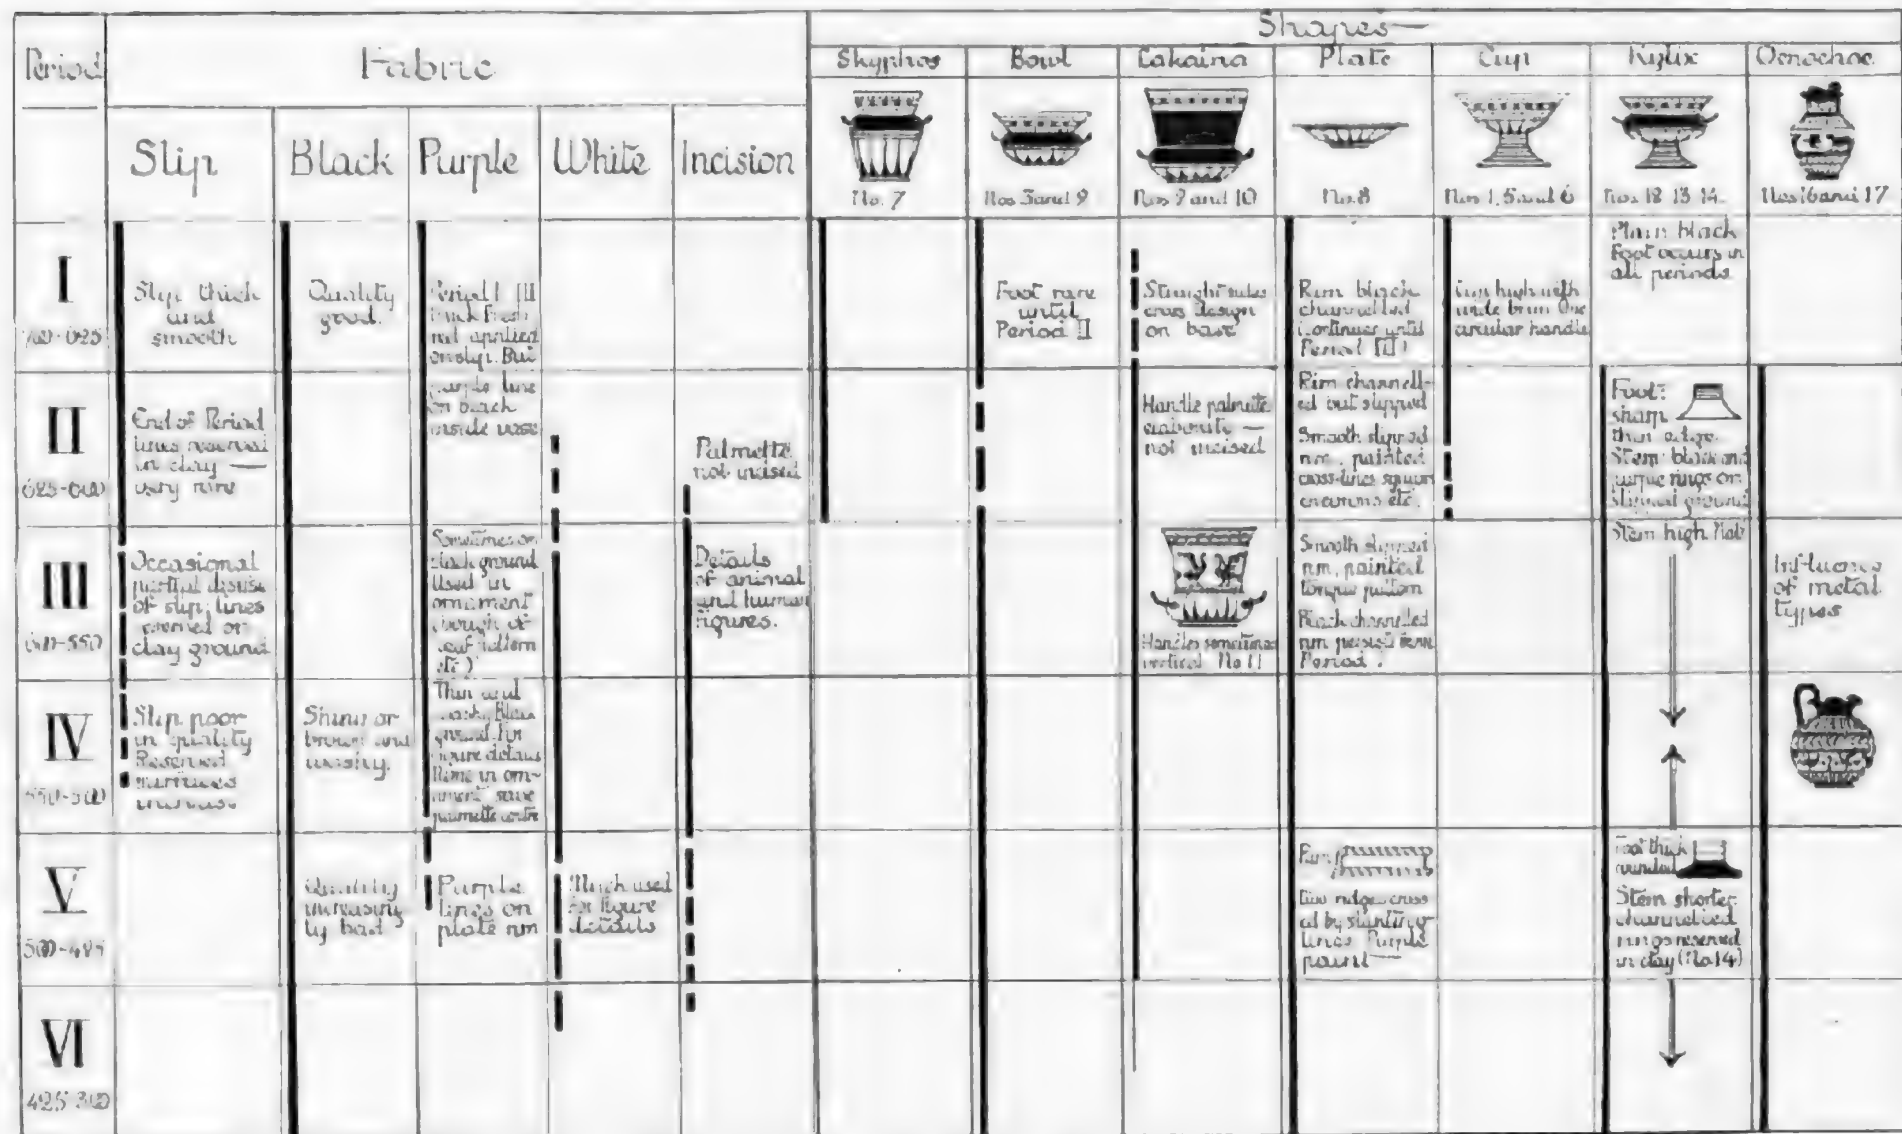 Period
Fabric
Shapes
Skyphos
Bowl
Lakaina
Plate
Cup
Kylix
Oenochoe
Slip
Black
Purple
White
Incision
No. 7
Nos 3 and 9
Nos 9 and 10
No. 8
Nos 1, 5 and 6
Nos 12 13 14
Nos 16 and 17
I
Slip thick
and
smooth
Quality
good.
Period I
applied
on slip. But
purple line
on black
inside vase
Foot rare
until
Period II
Straight sides
cross design
on base
Rim black
channelled
(continues until
Period III)
Cup high with
wide brim One
circular handle
Plain black
Foot occurs in
all periods
II
625-600
End of Period
lines reserved
in clay —
very rare
Palmette
not incised
Handle palmette
elaborate —
not incised
Rim channell-
ed but slipped
Smooth slipped
rim, painted
cross-lines squares
chevrons etc.
Foot:
sharp
thin edge.
Stem black and
purple rings on
slipped ground
III
600-550
Occasional
partial disuse
of slip; lines
reserved on
clay ground
Sometimes on
black ground
Used in
ornament
leaf pattern
etc.)
Details
of animal
and human
figures.
Handles sometimes
vertical No 11
Smooth slipped
rim, painted
tongue pattern
Black channelled
rim persists from
Period I
Stem high. Nob
Influence
of metal
types
IV
550-500
Slip poor
in quality
Reserved
surfaces
increase
Shiny or
brown and
washy.
Thin and
washy. Black
ground for
figure details
None in orn-
ament save
palmette centre
V
500-425
Quality
increasing
ly bad
Purple
lines on
plate rim
Much used
for figure
details
Rim
two ridges cross
ed by slanting
lines Purple
paint —
Foot thick
rounded
Stem shorter
channelled
rings reserved
in clay (No 14)
VI